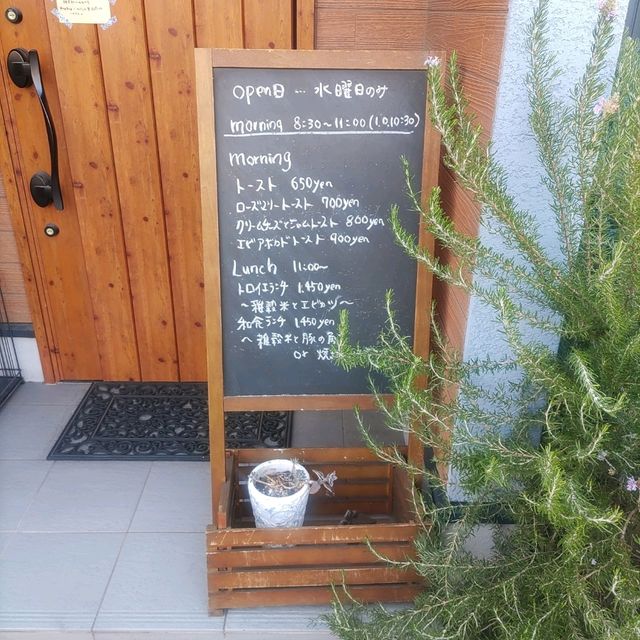 open日 … 水曜日のみ
morning 8:30〜11:00 (l.o,10:30)
morning
トースト 650yen
ローズマリートースト 700yen
クリームチーズとジャムトースト 800yen
エビアボカドトースト 900yen
Lunch 11:00〜
トロイエランチ 1.450yen
〜雑穀米とエビカツ〜
和食ランチ 1450yen
〜雑穀米と豚の角
or 焼